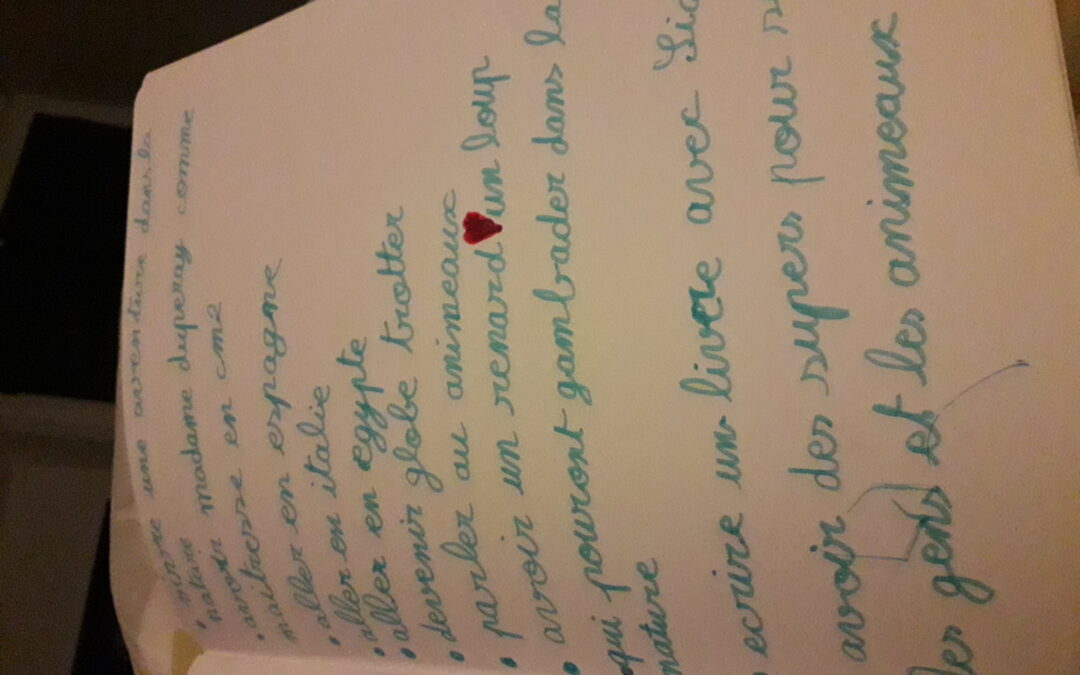 • vivre une aventure dans la
nature
• avoir madame duperay comme
maitresse en cm2
• aller en espagne
• aller en italie
• aller en egypte
• devenir globe trotter
• parler au animeaux
• avoir un renard un loup
qui pouront gambader dans la
nature
• ecrire un livre avec
avoir des supers pour
des gens et les animeaux